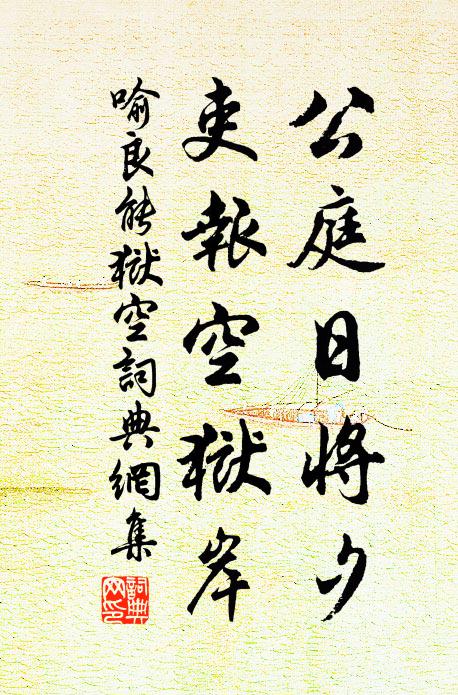 公庭日将夕
吏報空獄岸
喻良能獄空詞典網集
詞典
网印